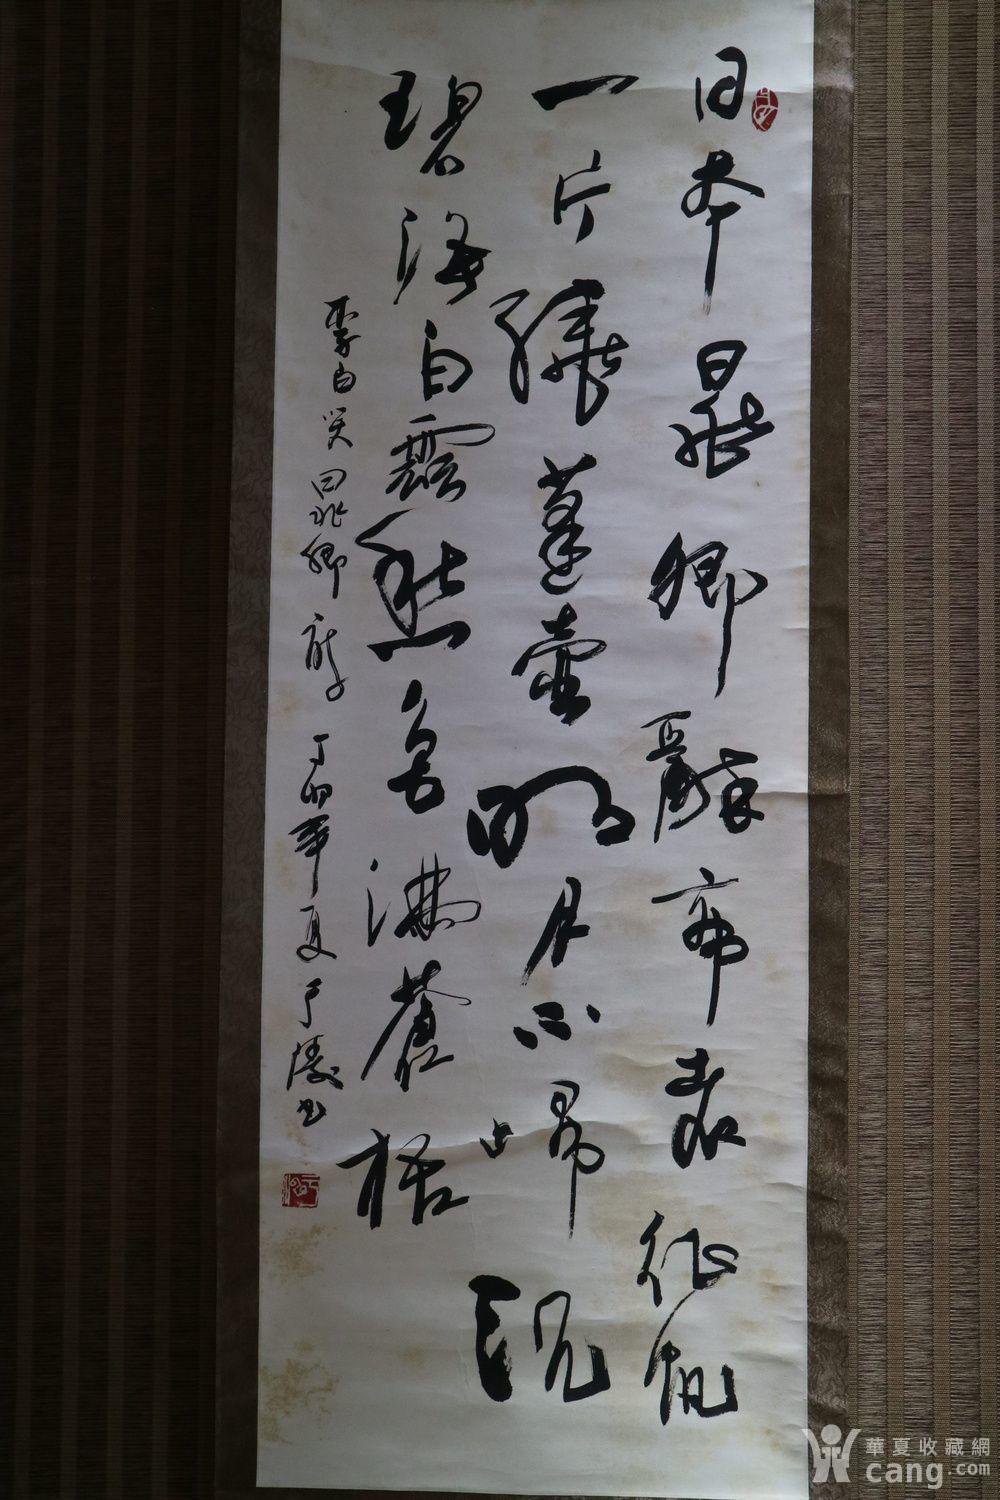 日本晁卿辭帝都征帆
一片繞蓬壷明月不歸沉
碧海白雲愁色满蒼梧
李白哭晁卿 丁卯年夏
華夏收藏網
cang.com